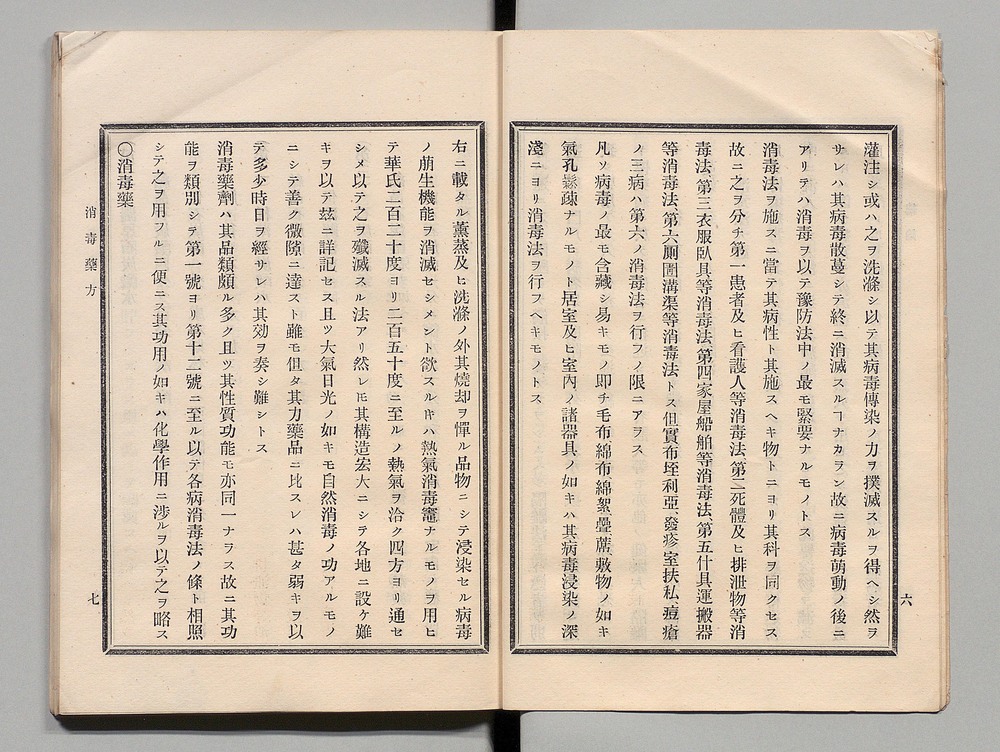 灌注シ或ハ之ヲ洗滌シ以テ其病毒傳染ノ力ヲ撲滅スルヲ得ヘシ然ヲ
サレハ其病毒散蔓シテ終ニ消滅スルヿナカラン故ニ病毒萌動ノ後ニ
アリテハ消毒ヲ以テ豫防法中ノ最モ緊要ナルモノトス
消毒法ヲ施スニ當テ其病性ト其施スヘキ物トニヨリ其科ヲ同クセス
故ニ之ヲ分チ第一患者及ヒ看護人等消毒法、第二死體及ヒ排泄物等消
毒法、第三衣服臥具等消毒法、第四家屋船舶等消毒法、第五什具運搬器
等消毒法、第六厠圊溝渠等消毒法トス但實布垤利亞、發疹窒扶私、痘瘡
ノ三病ハ第六ノ消毒法ヲ行フノ限ニアヲス
凡ソ病毒ノ最モ含藏シ易キモノ即チ毛布綿布綿絮疊蓆、敷物ノ如キ
氣孔鬆疎ナルモノト居室及ヒ室內ノ諸器具ノ如キハ其病毒浸染ノ深
淺ニヨリ消毒法ヲ行フヘキモノトス
六
右ニ載タル薰蒸及ヒ洗滌ノ外其燒却ヲ憚ル品物ニシテ浸染セル病毒
ノ萠生機能ヲ消滅セシメント欲スルㇳキハ熱氣消毒竈ナルモノヲ用ヒ
テ華氏二百二十度ヨリ二百五十度ニ至ルノ熱氣ヲ洽ク四方ヨリ通セ
シメ以テ之ヲ殲滅スル法アリ然レㇳモ其構造宏大ニシテ各地ニ設ケ難
キヲ以テ玆ニ詳記セス且ツ大氣日光ノ如キモ自然消毒ノ功アルモノ
ニシテ善ク微隙ニ達スト雖モ但タ其力藥品ニ比スレハ甚タ弱キヲ以
テ多少時日ヲ經サレハ其効ヲ奏シ難シトス
消毒藥劑ハ其品類頗ル多ク且ツ其性質功能モ亦同一ナラス故ニ其功
能ヲ類別シテ第一號ヨリ第十二號ニ至ル以テ各病消毒法ノ條ト相照
シテ之ヲ用フルニ便ニス其功用ノ如キハ化學作用ニ涉ルヲ以テ之ヲ略ス
〇消毒藥
消毒藥方
七